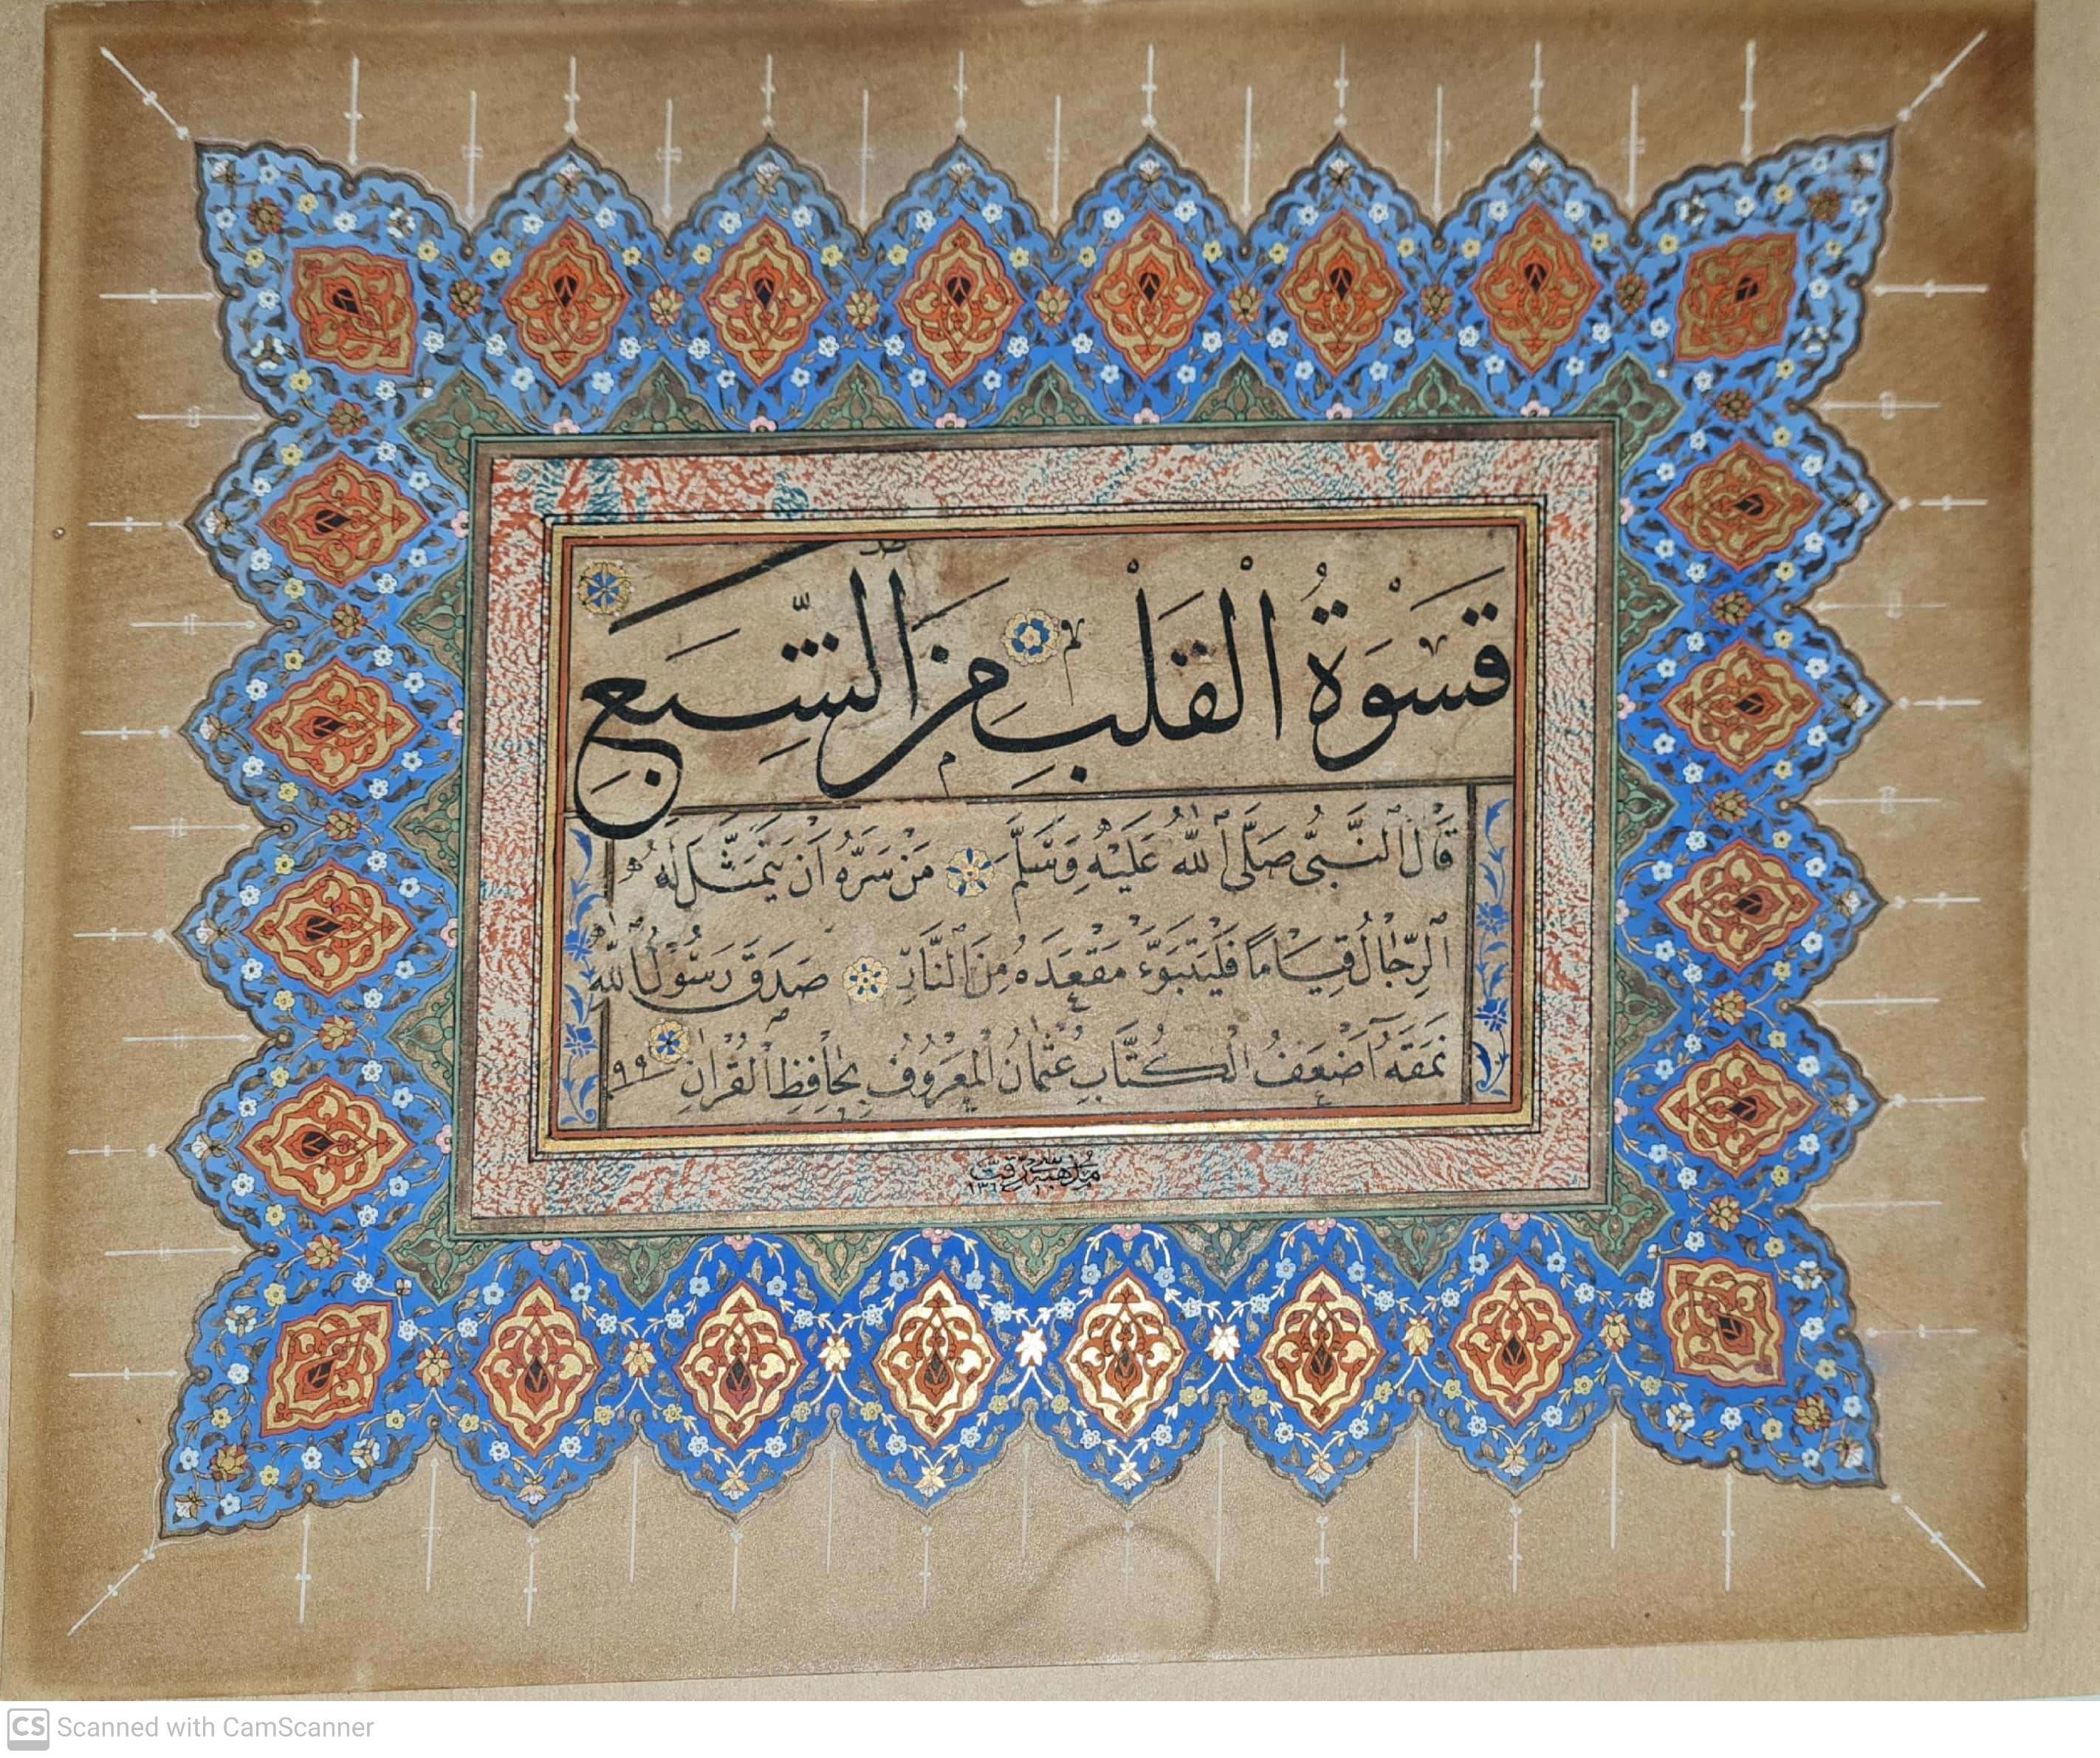 قَسْوَةُ الْقَلْبِ مِنَ الشِّبَعِ
قَالَ النَّبِىُّ صَلَّى اللّٰهُ عَلَيْهِ وَسَلَّمَ مَنْ سَرَّهُ اَنْ يَتَمَثَّلَ لَهُ
الرِّجَالُ قِيَامًا فَلْيَتَبَوَّءْ مَقْعَدَهُ مِنَ النَّارِ صَدَقَ رَسُولُ اللّٰه
نَمَقَهُ اَضْعَفُ الْكُتَّابِ عُثْمَانُ الْمَعْرُوفُ بِحَافِظِ الْقُرْاٰنِ ٩٩
CS Scanned with CamScanner